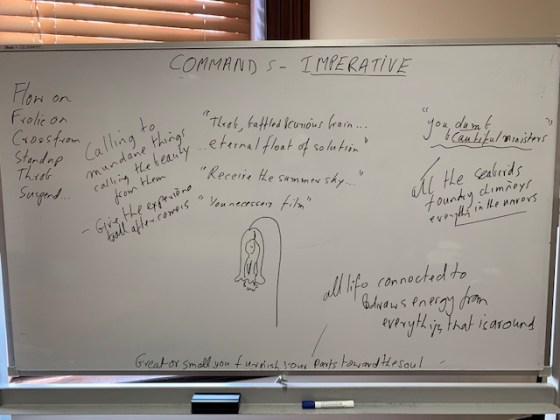 COMMANDS - IMPERATIVE
Flow on
Frolic on
Cross from
Stand up
Throb
Suspend...
Calling to
mundane things
calling the beauty
from them
- Give the experience
to all after comers
"Throb, baffled & curious brain...
...eternal float of solution"
"Receive the summer sky...
"You necessary film"
"you dumb
beautiful ministers"
all the seabirds
foundry chimneys
everythg in the
all life connected to
& draws energy from
everything that is around
Great or small you furnish your parts toward the soul